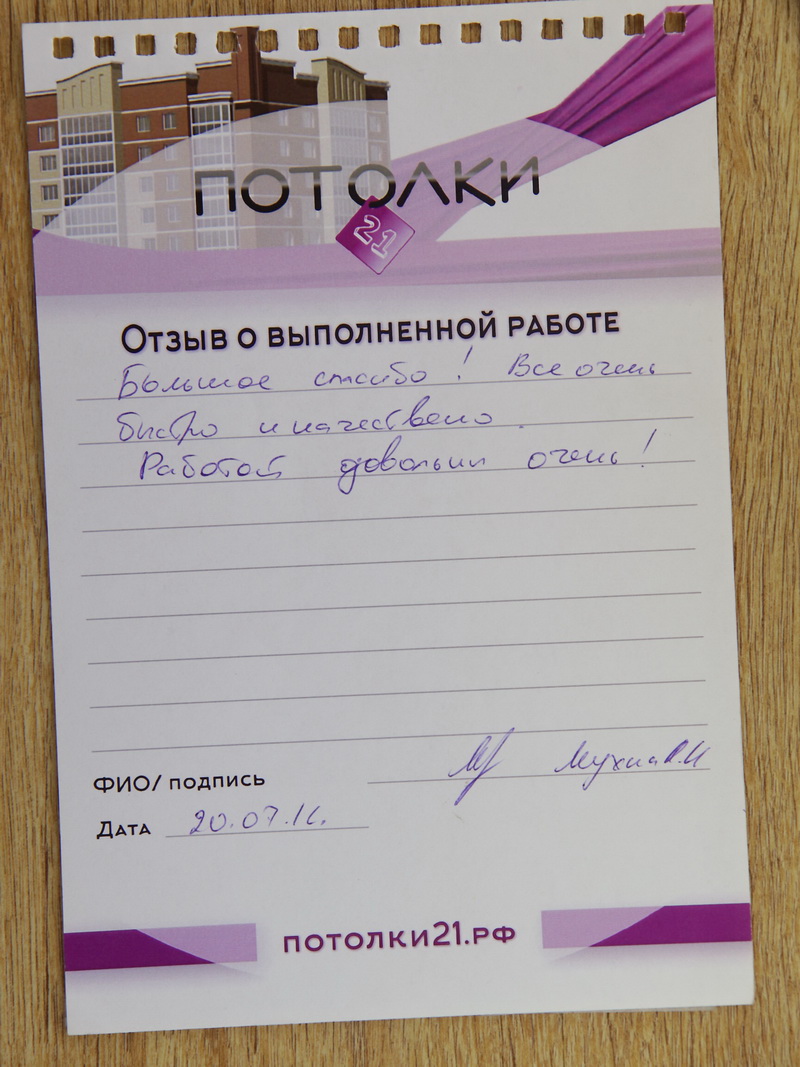 ПОТОЛКИ
21
ОТЗЫВ О ВЫПОЛНЕННОЙ РАБОТЕ
Большое спасибо! Все очень
быстро и качествено.
Работой довольны очень!
ФИО/ подпись Мухина Л.И
ДАТА 20.07.16.
ПОТОЛКИ21.РФ